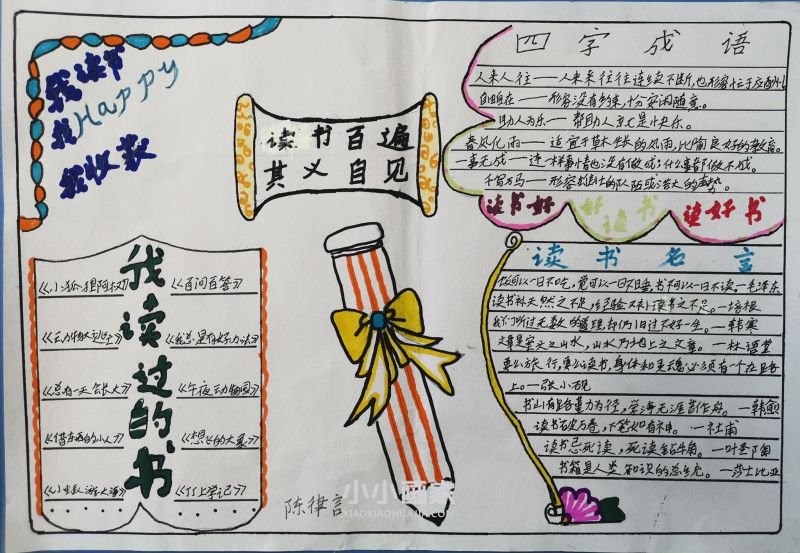 我读书
我Happy
我收获
读书百遍
其义自见
四字成语
人来人往——人来来往往连续不断,也形容忙于应酬
自由自在——形容没有约束,十分安闲随意。
助人为乐——帮助人
春风化雨——适宜于草木生长的风雨,比喻良好的教育。
一事无成——连一样事情也没有做成;什么事都做不成。
千军万马——形容雄壮的队伍或浩大的声势。
读书好 好读书 读好书
读书名言
饭可以一日不吃,觉可以一日不睡,书不可以一日不读。—毛泽东
读书补天然之不足,经验又补读书之不足。—培根
我们听过无数的道理,却仍旧过不好一生。—韩寒
文章是案头之山水,山水乃地上之文章。—林语堂
要么旅行,要么读书,身体和灵魂必须有一个在路
上。—张小砚
书山有路勤为径,学海无涯苦作舟。—韩愈
读书破万卷,下笔如有神。—杜甫
读书忌死读,死读钻牛角。—叶圣陶
书籍是人类知识的总统。—莎士比亚
我读过的书
《小狐狸阿权》 《百问百答》
《我总是有好办法》
《总有一天会长大》 《午夜动物园》
《借东西的小人》
《丁丁上学记》
陈律言
小小画家
XIAOXIAOHUAJIA.COM